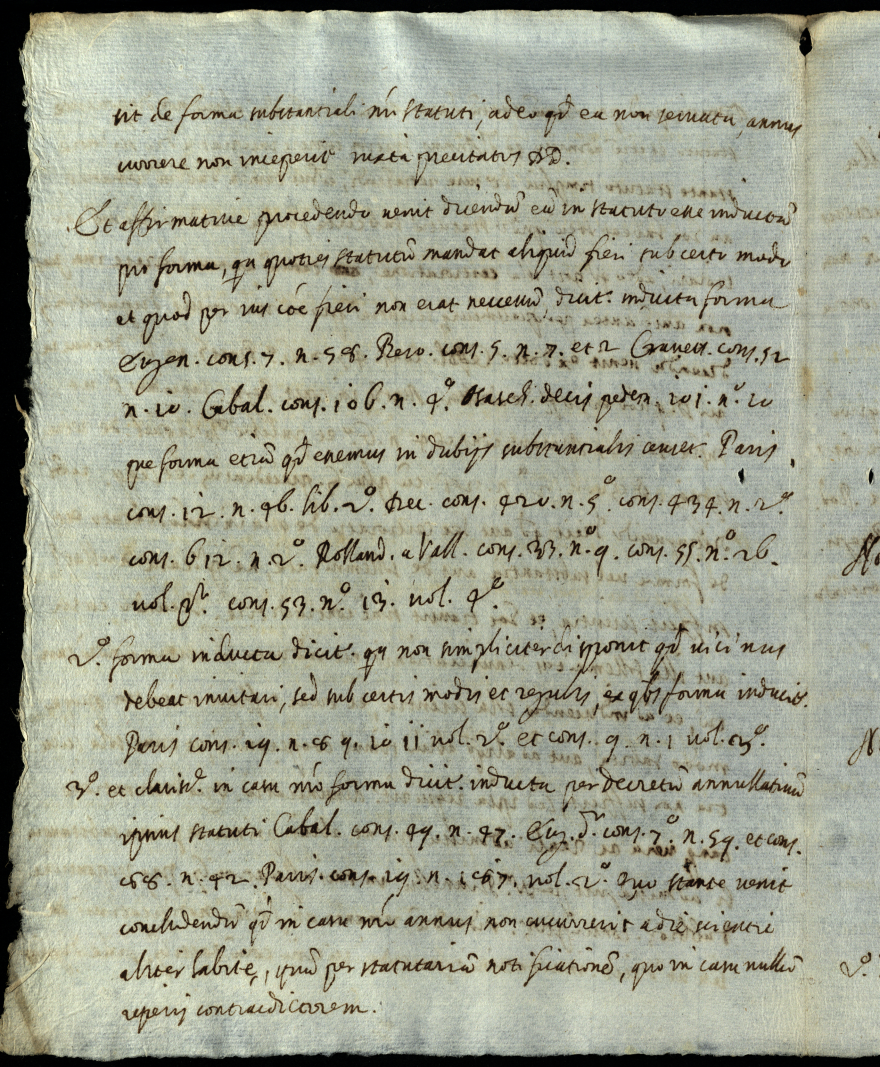 sit de forma substantiali nri statuti, adeo qd ea non servata, annus
currere non inceperit iuxta precitatos DD.
Et affirmative procedendo venit dicendu ea in statuto esse inducta
pro forma, qa quoties statutu mandat aliquid fieri sub certo modo
et quod per ius coe fieri non erat necessu, dicit. inducta forma
Eugen. cons. 7. n. 58. Bero. cons. 5. n. 7. et 2 Gravett. cons. 52
n. 10. Cabal. cons. 106. n. 4.o Osasch. decis pedem. 101. n.o 10
que forma etia qd essemus in dubijs substantialis censet. Paris
cons. 12. n. 46. lib. 2.o Dec. cons. 420. n. 5.o cons. 434. n. 2.o
cons. 612. n. 2.o Rolland. a Vall. cons. 33. n.o 9. cons. 55. n.o 26.
vol. pr. cons. 53. n.o 13. vol. 4.o
2.o forma inducta dicit. qa non simpliciter disponit qd vicinus
debeat invitari, sed sub certis modis et regulis, ex qbs forma inducit.
Paris cons. 19. n. 8 9. 10 11 vol. 2.o et cons. 9. n. 1 vol. 3.o
3.o et clarius in casu nro forma dicit. inducta per decretu annullativu
ipsius statuti Cabal. cons. 49. n. 47. Eug. d. cons. 7.o n. 59. et cons.
88. n. 42. Paris. cons. 19. n. vol. 2.o Quo stante venit
concludendu qd in casu nro annus non cucurrerit a die scientie
aliter habite, qua per statutaria notificatione, quo in casu nullu
reperij contradictorem.